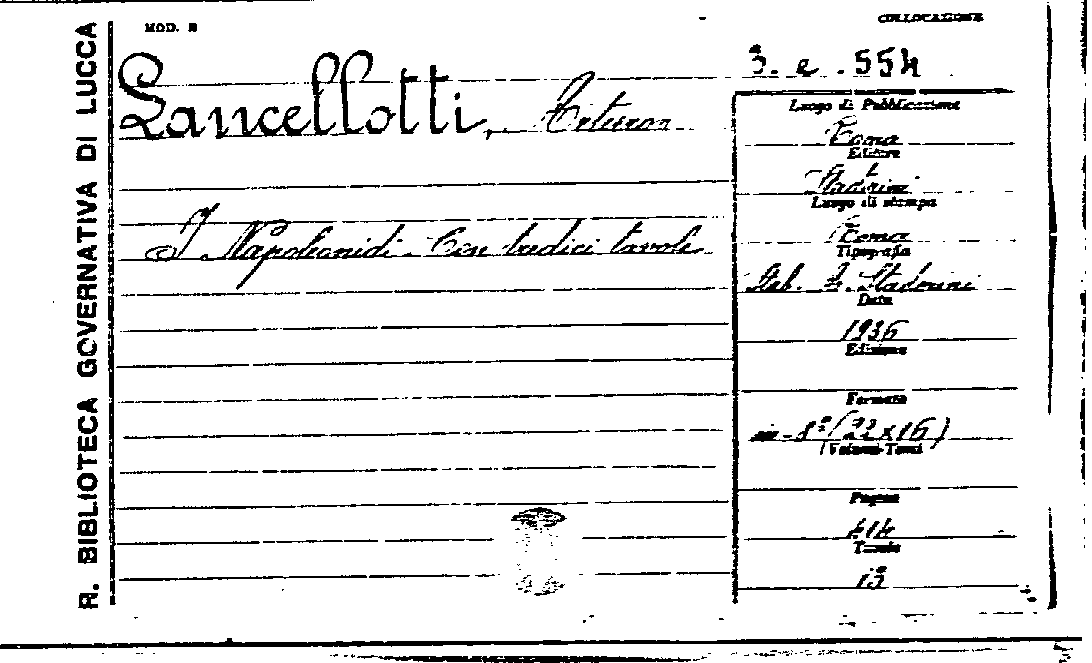 R. BIBLIOTECA GOVERNATIVA DI LUCCA
MOD. B
COLLOCAZIONE
3. e. 554
Lancellotti, Arturo
I Napoleonidi. Con tredici tavole
Luogo di Pubblicazione
Roma
Editore
Staderini
Luogo di stampa
Roma
Tipografia
Stab. Staderini
Data
1936
Edizione
Formato
in-8° (22x16)
Volumi-Tomi
Pagine
414
Tavole
13